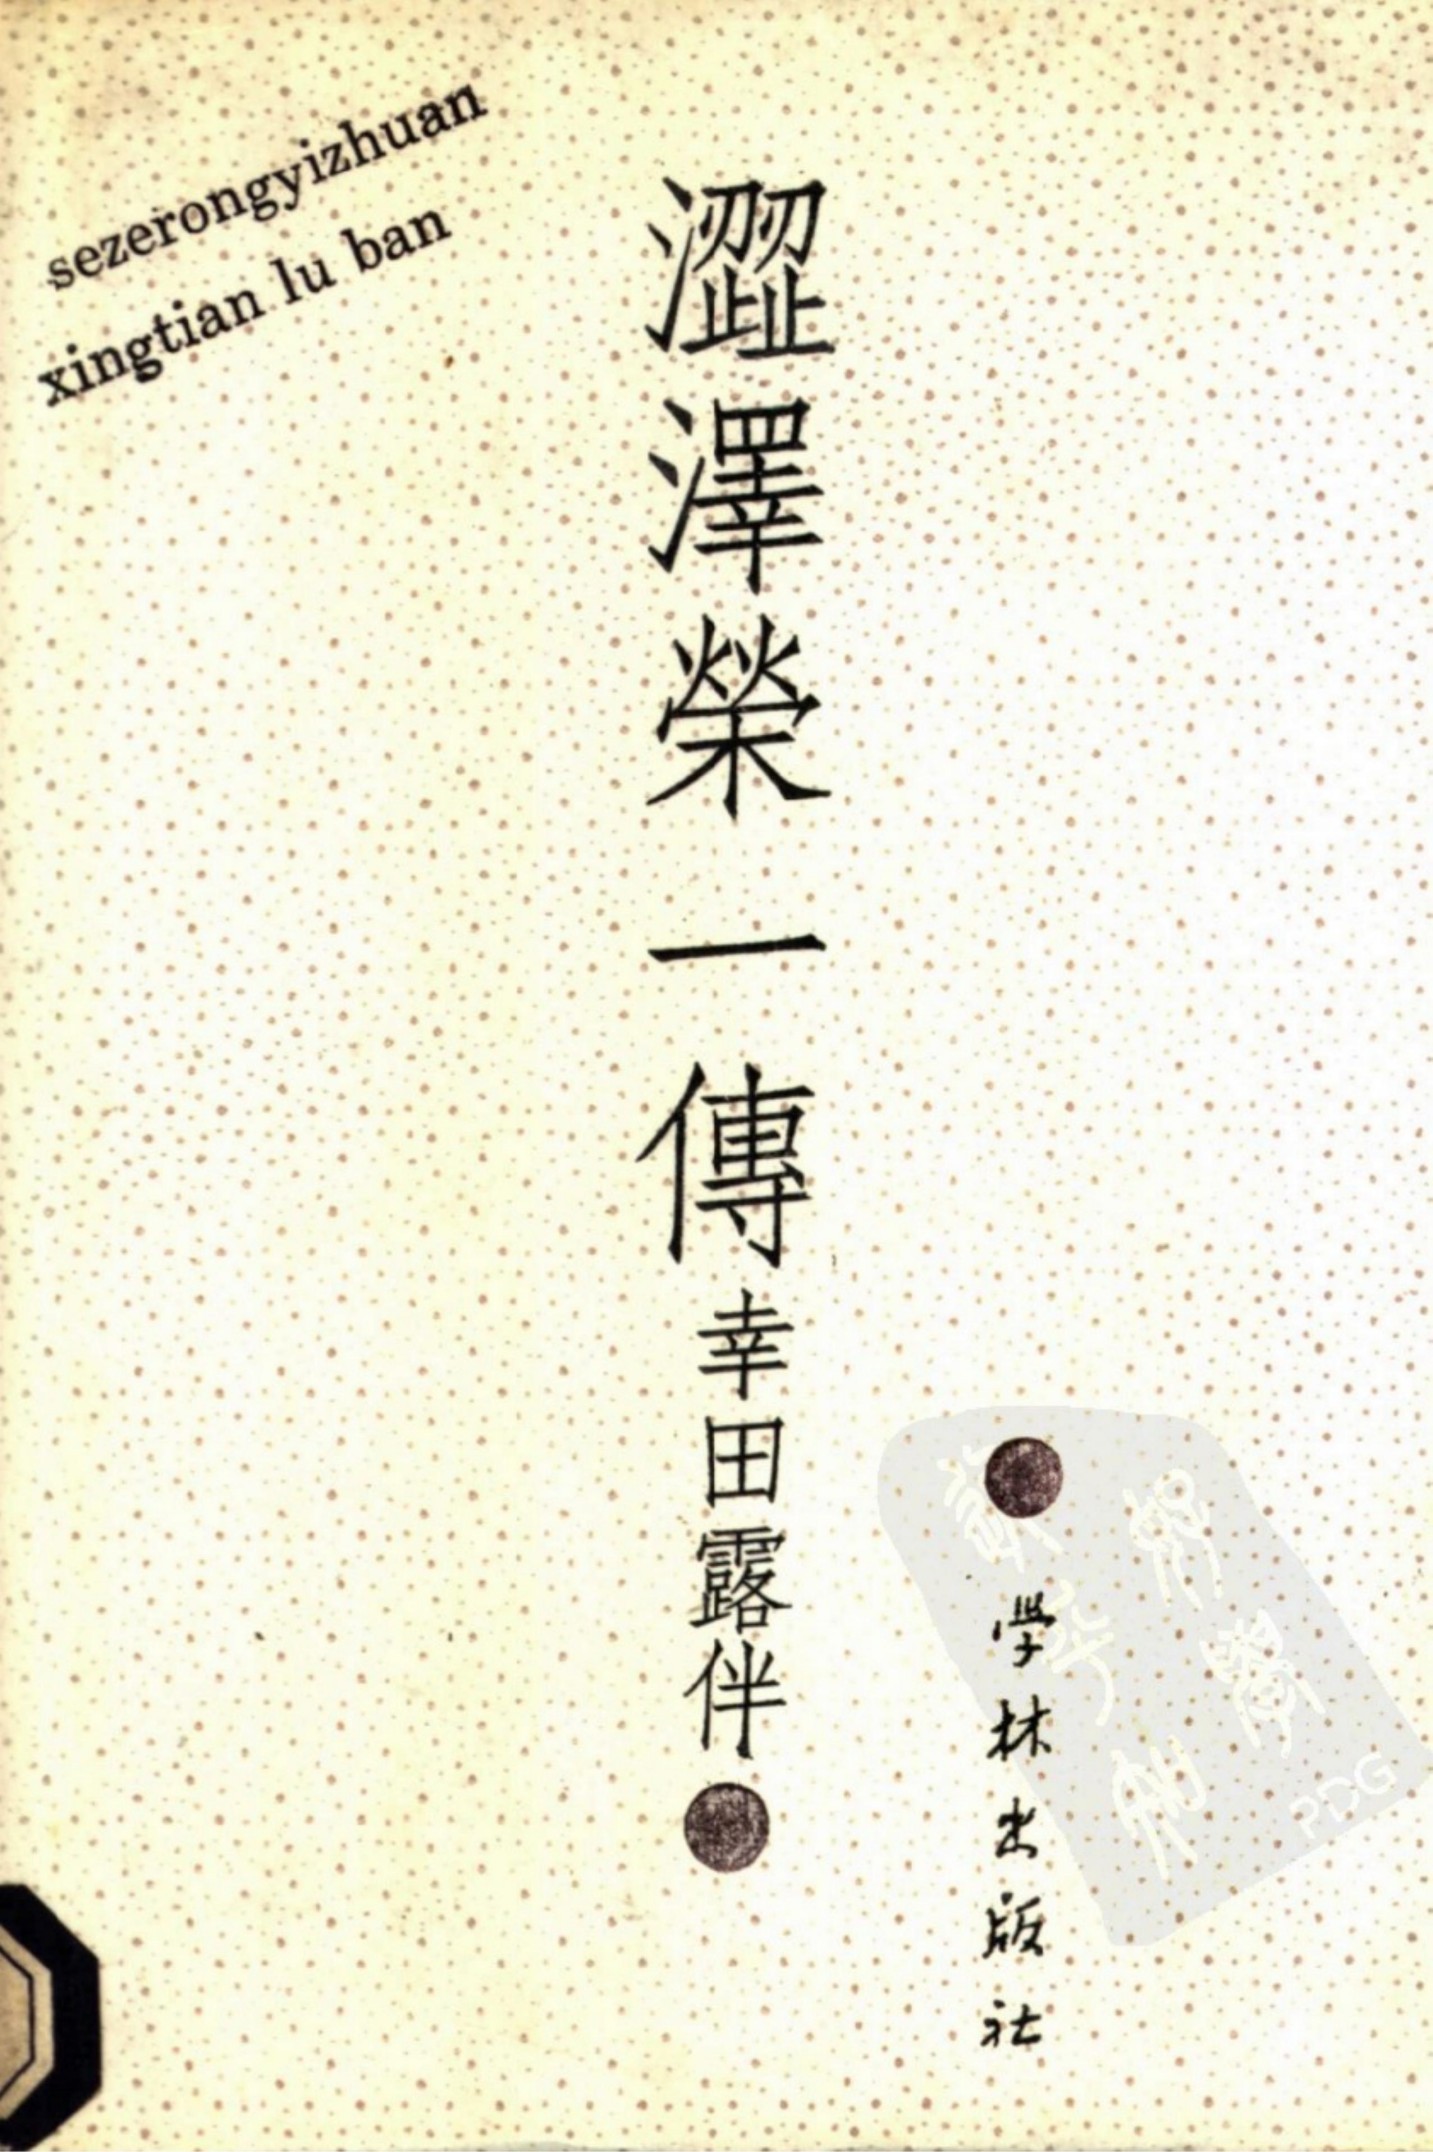 sezerongyizhuan
xingtian lu ban
澀澤榮一傳
幸田露伴
學林出版社
PDG